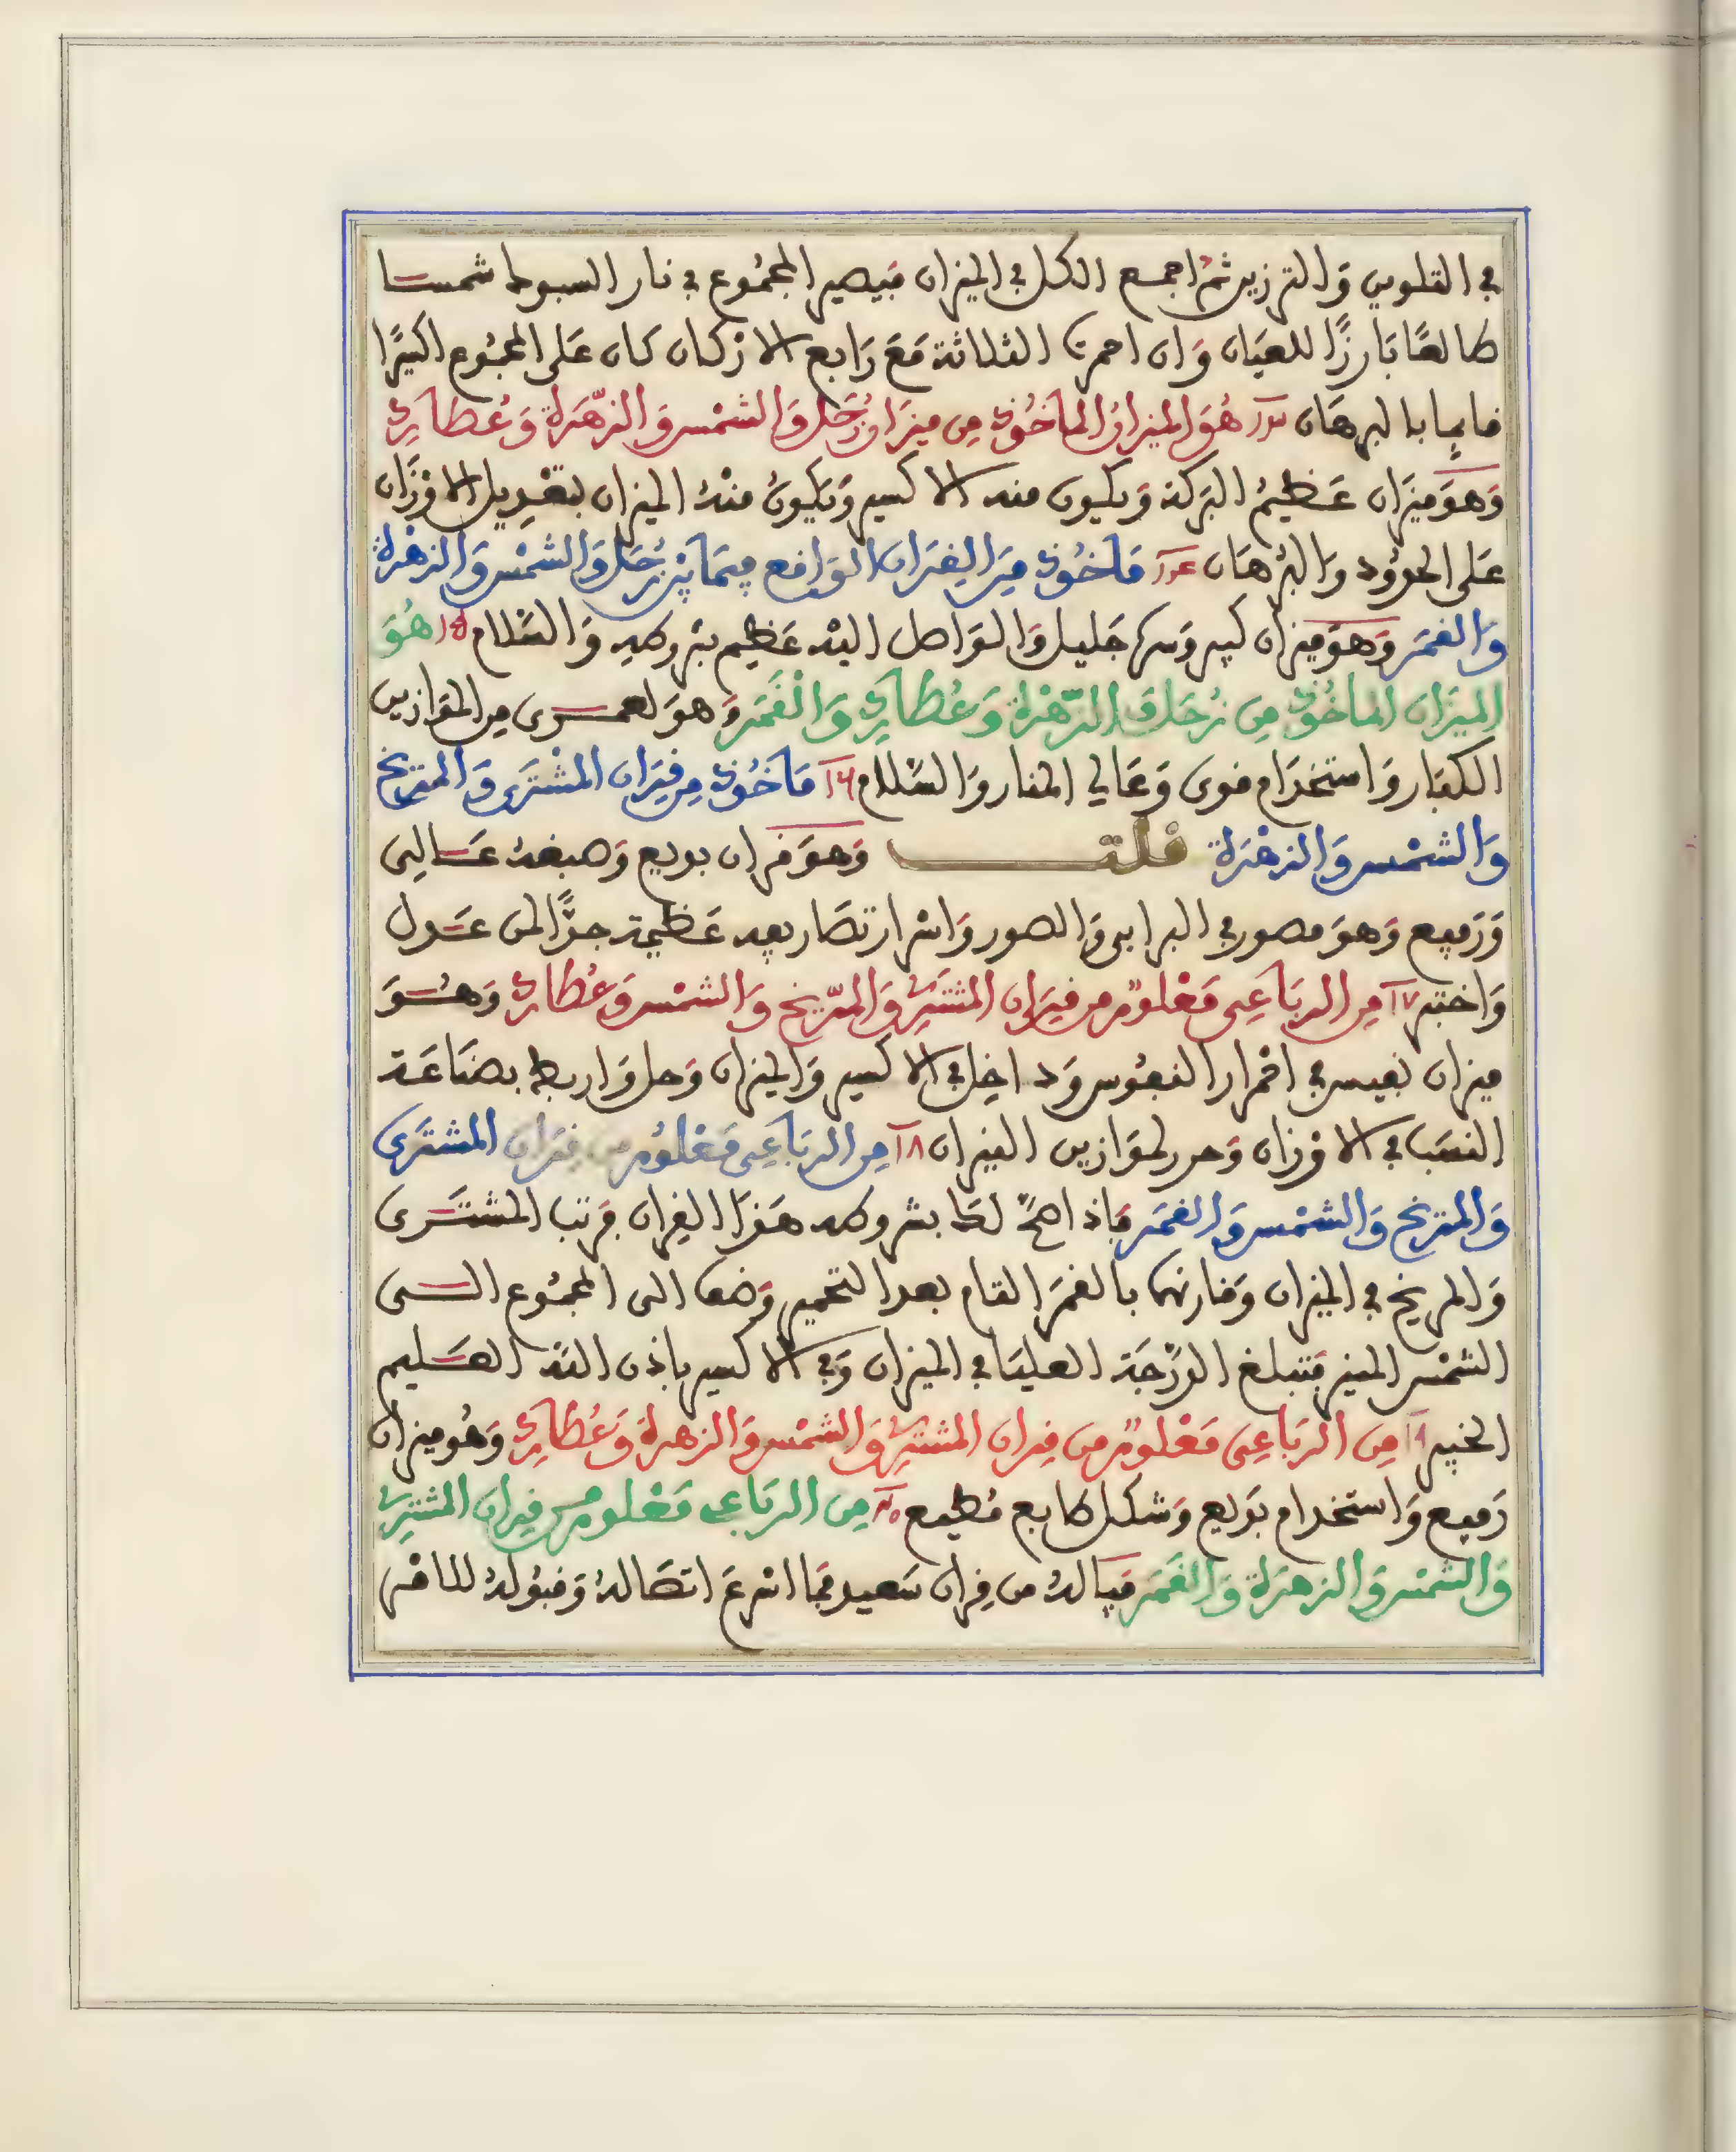 في التلوين والترزين ثم اجمع الكل في الميزان فيصير المجموع في نار السبوط شمسا
طالعًا بَارزًا للعيَان وَان احمرت الثلاثة مَعَ رَابع الاركان كان عَلى المجمُوع اكسيرًا
قايما بالبرهَان هُوَ الميزان الماخُوذ مِن ميزان زُحَل وَالشمْس وَالزّهَرة وَعُطارد
وَهوَ ميزَان عَظيمُ البَركة وَيكون منه الاكسير وَيكونُ منْهُ الميزان بتعْديل الاوْزَان
عَلى الحدُود وَالبُرهَان مَاخُوذ مِن القِرَان الوَاقع فيمَا بَيْن زُحَل وَالشمْس وَالزهْرة
وَالقمَر وَهوَ ميزان كبير وَسر جَليل وَالوَاصل اليْه عَظيم بشروطه وَالسّلام ١٥ هُوَ
الميزَان الماخُوذ مِن زُحَل وَالزّهْرة وَعُطارد وَالْقَمَر وَهوَ لعمــرى مِن الموَازين
الكبَار وَاستخدَام قوى وَعَالي المنار وَالسّلام ١٦ مَاخُوذ مِن قِرَان المشترَى وَالمرّيخ
وَالشمْس وَالزهْرَة قلت وَهوَ قران بديع وَصبغهُ عَــالي
وَرَفيع وَهوَ مصور في البرابي وَالصور وَاسْرار تصَاريفه عَظيمة جدًّا لمن عَــدل
وَاختبر ١٧ مِن الربَاعِى مَعْلومٌ من قِرَان المشترى وَالمرّيخ وَالشمْس وَعُطارد وَهُــوَ
ميزان نفيس في اقمرار النفُوس وَداخِل في الاكسير وَالميزان وَحل وَاربط بصنَاعَة
النسَب في الاوْزان وَحرر لموَازين النيران ١٨ مِن الربَاعِى مَعْلُوم من قِرَان المشترَى
وَالمرّيخ وَالشمْس وَالقمَر فَاذا صحّ لك بشروطه هَذا القِران فرَتب المشتــرى
وَالمريخ في الميزان وَقارنهما بالقمَر التام بعد التحمير وَضفها الى المجمُوع الــى
الشمْس المنير فتبلغ الدرَجَة العليَا في الميزان وَفي الاكسير باذن اللّه العَــليم
الخبير ١٩ مِن الربَاعِى مَعْلومٌ من قِران المشترى وَالشمْس وَالزهرة وَعُطارد وَهُو ميزان
رَفيع وَاستخدام بَديع وَشكل طابع مُطيع ٢٠ مِن الربَاعي مَعْلوم من قِران المشترى
وَالشمْس وَالزهرَة وَالقَمَر فيَا لهُ من قِران سَعيد فمَا اسْرعَ اتصَالهُ وَقبُولهُ للاقمر